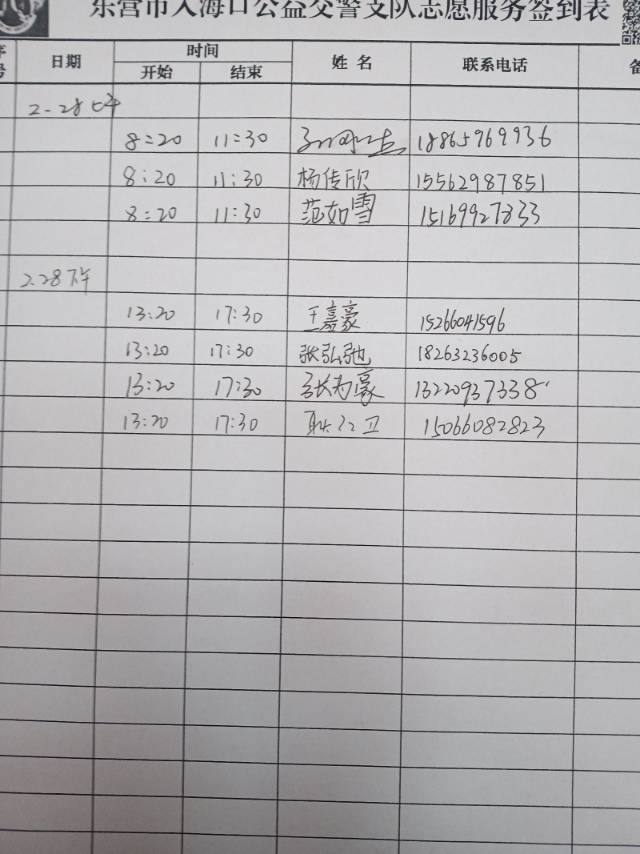 东营市入海口公益交警支队志愿服务签到表
日期 时间 姓名 联系电话
开始 结束
2-28上午
8:20 11:30 18865969936
8:20 11:30 杨传欣 15562987851
8:20 11:30 范如雪 15169927833
2.28下午
13:20 17:30 王嘉豪 15266041596
13:20 17:30 张弘弛 18263236005
13:20 17:30 张为豪 13220937338
13:20 17:30 15066082823